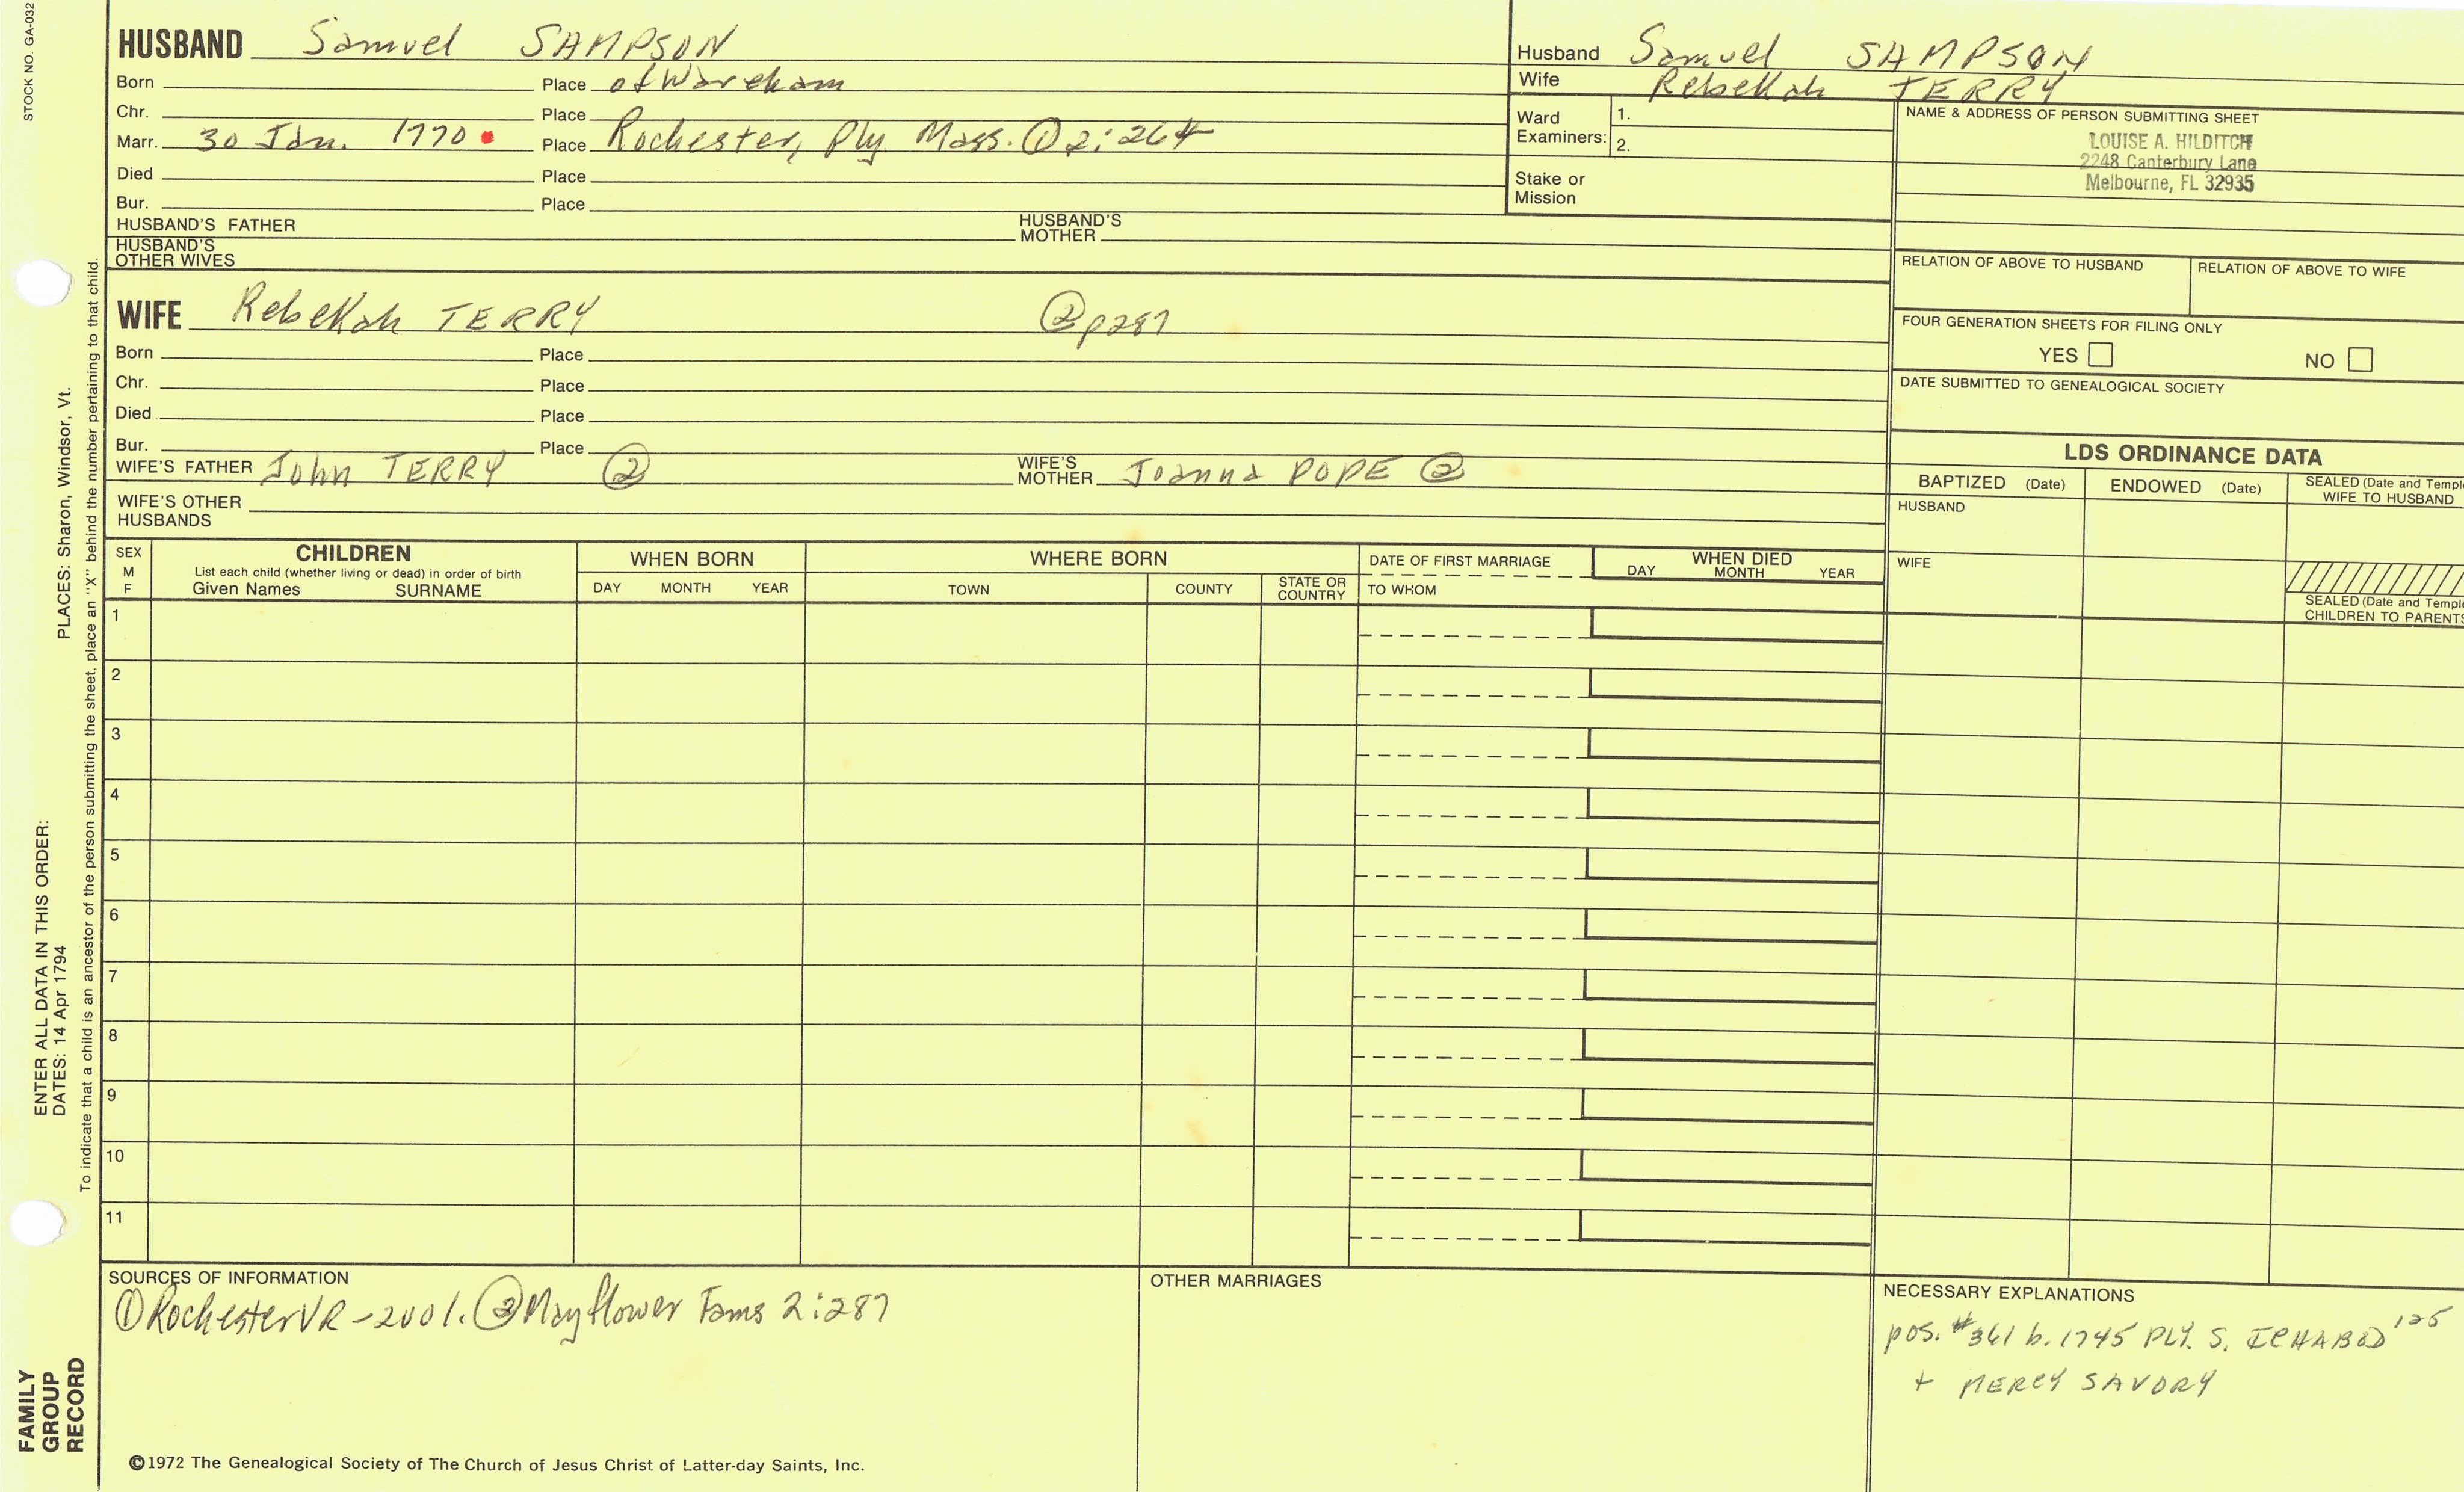 STOCK NO. GA-032
HUSBAND Samuel SAMPSON
Born Place of Wareham
Chr. Place
Marr. 30 Jan. 1770 Place Rochester, Ply. Mass. ① 2:264
Died Place
Bur. Place
HUSBAND'S FATHER HUSBAND'S MOTHER
HUSBAND'S OTHER WIVES
Husband Samuel SAMPSON
Wife Rebekah TERRY
Ward Examiners: 1.
2.
Stake or Mission
NAME & ADDRESS OF PERSON SUBMITTING SHEET
LOUISE A. HILDITCH
2248 Canterbury Lane
Melbourne, FL 32935
RELATION OF ABOVE TO HUSBAND RELATION OF ABOVE TO WIFE
FOUR GENERATION SHEETS FOR FILING ONLY
YES NO
DATE SUBMITTED TO GENEALOGICAL SOCIETY
WIFE Rebekah TERRY ② p287
Born Place
Chr. Place
Died Place
Bur. Place
WIFE'S FATHER John TERRY ② WIFE'S MOTHER Joanna POPE ②
WIFE'S OTHER HUSBANDS
LDS ORDINANCE DATA
BAPTIZED (Date) ENDOWED (Date) SEALED (Date and Temple
WIFE TO HUSBAND
HUSBAND
WIFE
SEALED (Date and Temple
CHILDREN TO PARENTS
SEX M F
CHILDREN
List each child (whether living or dead) in order of birth
Given Names SURNAME
WHEN BORN
DAY MONTH YEAR
WHERE BORN
TOWN COUNTY STATE OR COUNTRY
DATE OF FIRST MARRIAGE
TO WHOM
WHEN DIED
DAY MONTH YEAR
1
2
3
4
5
6
7
8
9
10
11
SOURCES OF INFORMATION
① Rochester VR - 2001. ② Mayflower Fams 2:287
OTHER MARRIAGES
NECESSARY EXPLANATIONS
pos. #361 b. 1745 PLY. S. ICHABOD 125
+ MERCY SAVORY
©1972 The Genealogical Society of The Church of Jesus Christ of Latter-day Saints, Inc.
FAMILY GROUP RECORD
ENTER ALL DATA IN THIS ORDER:
DATES: 14 Apr 1794 PLACES: Sharon, Windsor, Vt.
To indicate that a child is an ancestor of the person submitting the sheet, place an "X" behind the number pertaining to that child.